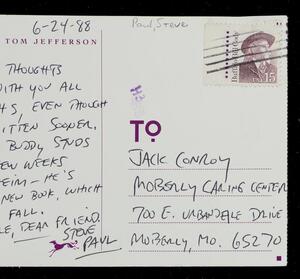 6-24-88
TOM JEFFERSON
THOUGHTS
WITH YOU ALL
HS, EVEN THOUGH
ITTEN SOONER.
BUDDY STUDS
EW WEEKS
HEIM – HE'S
NEW BOOK, WHICH
FALL.
LE, DEAR FRIEND.
STEVE
PAUL
Paul, Steve
Buffalo Bill Cody
USA 15
TO
JACK CONROY
MOBERLY CARING CENTER
700 E. URBANDALE DRIVE
MOBERLY, MO. 65270